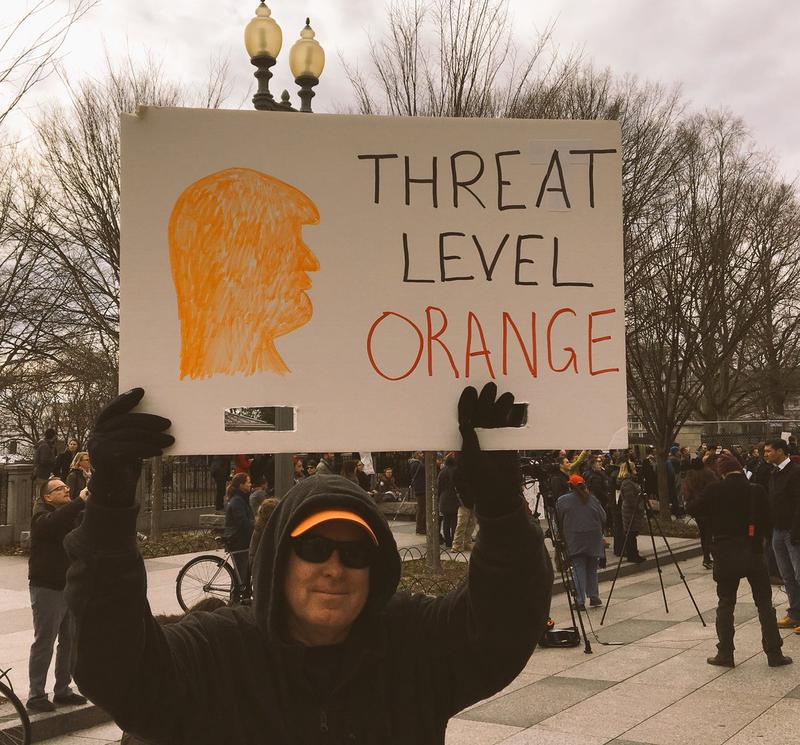 THREAT
LEVEL
ORANGE